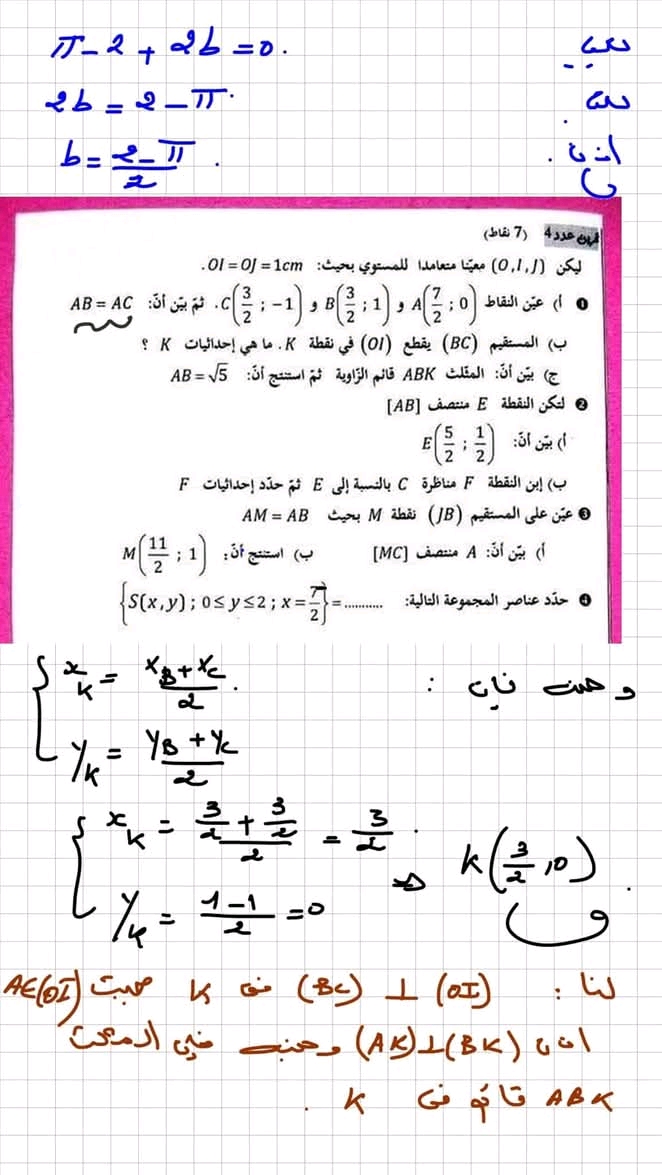 π - 2 + 2b = 0.
2b = 2 - π.
b = (2 - π)/2.
تمرين عدد 4 (7 نقاط)
ليكن (O, I, J) معيّنا متعامدا للمستوي بحيث: OI = OJ = 1cm.
❶ أ) عيّن النقاط A(7/2 ; 0) و B(3/2 ; 1) و C(3/2 ; -1). ثمّ بيّن أنّ: AB = AC
ب) المستقيم (BC) يقطع (OI) في نقطة K. ما هي إحداثيات K ؟
ج) بيّن أنّ: المثلّث ABK قائم الزّاوية ثمّ استنتج أنّ: AB = √5
❷ لتكن النقطة E منتصف [AB]
أ) بيّن أنّ: E(5/2 ; 1/2)
ب) إبن النقطة F مناظرة C بالنسبة إلى E ثمّ حدّد إحداثيات F
❸ عيّن على المستقيم (JB) نقطة M بحيث AM = AB
أ) بيّن أنّ: A منتصف [MC] ب) استنتج أنّ: M(11/2 ; 1)
❹ حدّد عناصر المجموعة التالية: {S(x, y) ; 0 ≤ y ≤ 2 ; x = 7/2} = ...........
:
x_K = (x_B + x_C)/2.
y_K = (y_B + y_C)/2
x_K = (3/2 + 3/2)/2 = 3/2.
y_K = (1 - 1)/2 = 0 ⇒ K(3/2, 0).
لنا : (OI) ⊥ (BC) في K حيث A∈(OI)
اذن (BK)⊥(AK) ومنه فإن المثلث
ABK قائم في K .